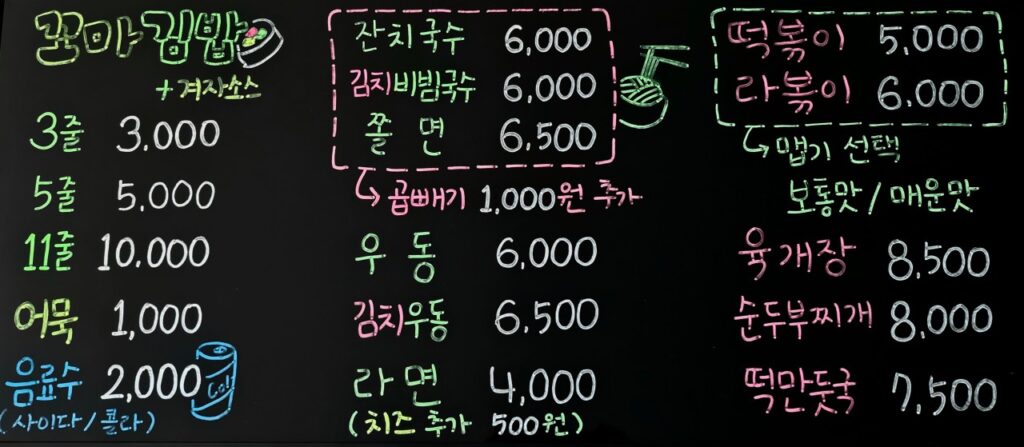 꼬마김밥
+ 겨자소스
3줄 3,000
5줄 5,000
11줄 10,000
어묵 1,000
음료수 2,000
(사이다/콜라)
잔치국수 6,000
김치비빔국수 6,000
쫄면 6,500
곱빼기 1,000원 추가
우동 6,000
김치우동 6,500
라면 4,000
(치즈 추가 500원)
떡볶이 5,000
라볶이 6,000
맵기 선택
보통맛/매운맛
육개장 8,500
순두부찌개 8,000
떡만둣국 7,500